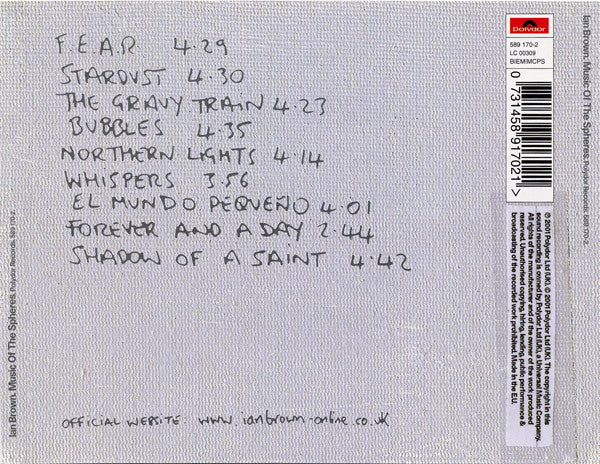 F.E.A.R. 4.29
STARDUST 4.30
THE GRAVY TRAIN 4.23
BUBBLES 4.35
NORTHERN LIGHTS 4.14
WHISPERS 3.56
EL MUNDO PEQUEÑO 4.01
FOREVER AND A DAY 2.44
SHADOW OF A SAINT 4.42
OFFICIAL WEBSITE: www.ianbrown-online.co.uk
Ian Brown. Music Of The Spheres. Polydor Records. 589 170-2.
Polydor
589 170-2
LC 00309
BIEM/MCPS
0 731458 917021 >
℗ 2001 Polydor Ltd (UK). © 2001 Polydor Ltd (UK). The copyright in this
sound recording is owned by Polydor Ltd (UK), a Universal Music Company.
All rights of the manufacturer and of the owner of the work produced
reserved. Unauthorised copying, hiring, lending, public performance &
broadcasting of the recorded work prohibited. Made in the EU.
Ian Brown. Music Of The Spheres. Polydor Records. 589 170-2.